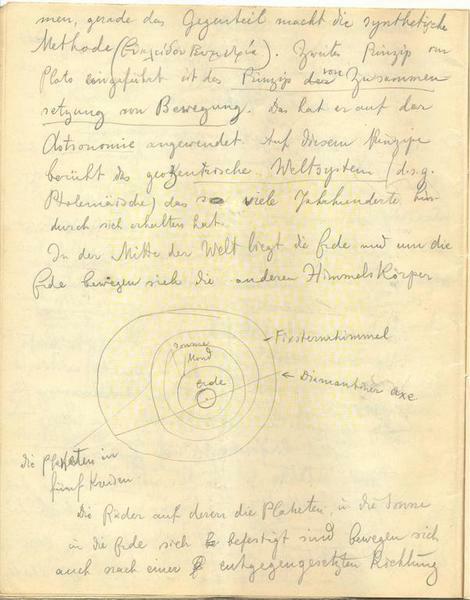 men, gerade das Gegenteil macht die synthetische
Methode. Zweites Prinzip von
Plato eingeführt ist das Prinzip der von Zusammen
setzung von Bewegung. Das hat er auf der
Astronomie angewendet. Auf diesem Prinzip
beruht das geozentrische Weltsystem (d.s.g.
Ptolemäische) das so viele Jahrhunderte hin-
durch sich erhalten hat.
In der Mitte der Welt liegt die Erde und um die
Erde bewegen sich die anderen Himmelskörper
Fixsternhimmel
Sonne
Mond
Erde
Diamantener Axe
Die Planeten in
fünf Kreisen
Die Räder auf denen die Planeten, u die Sonne
u die Erde sich befestigt sind bewegen sich
auch nach einer entgegengesetzten Richtung